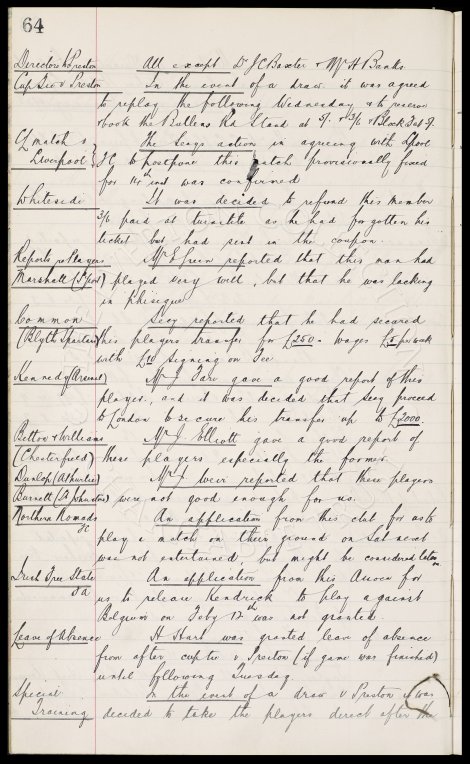 64
Directors to Preston All except Dr J C Baxter & Mr H Banks
Cup Tie v Preston In the event of a draw it was agreed
to replay the following Wednesday & to reserve
& book the Bullens Rd Stand at 5/- & 3/6 & Block Seats 5/-.
CL match v The Secys action in agreeing with Lpool
Liverpool F.C to postpone this match provisionally fixed
for 14th inst was confirmed
Whiteside It was decided to refund this member
3/6 paid at turnstile as he had forgotten his
ticket but had sent in the coupon.
Reports re Players Mr E Green reported that this man had
Marshall (S'port) played very well, but that he was lacking
in physique
Common Secy reported that he had secured
(Blyth Spartans) this players transfer for £250- wages £5 per week
with £10 signing on Fee
Kennedy (Arsenal) Mr J Fare gave a good report of this
player, and it was decided that Secy proceed
to London to secure his transfer up to £2000.
Betton & Williams Mr J. Elliott gave a good report of
(Chesterfield) these players especially the former.
Dunlop (Airdrie) Mr reported that these players
Burnett (St Johnstone) were not good enough for us.
Northern Nomads FC An application from this club for us to
play a match on their ground on Sat next
was not entertained, but might be considered later on
Irish Free State FA An application from this Assocn for
us to release Kendrick to play against
Belgium on Feby 12th was not granted.
Leave of Absence H Hart was granted leave of absence
from after cup tie v Preston (if game was finished)
until following Tuesday
Special In the event of a draw v Preston it was
Training decided to take the players direct after the